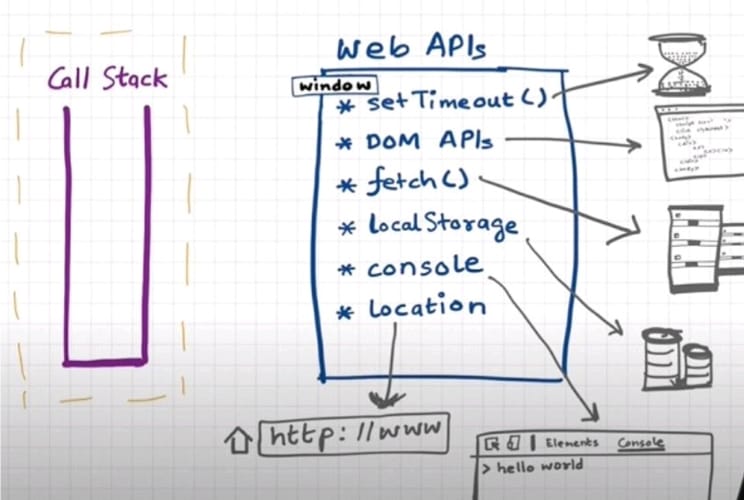 Web APIs
Call Stack
window
* setTimeout()
* DOM APIs
* fetch()
* localStorage
* console
* location
http://www
Elements Console
> hello world